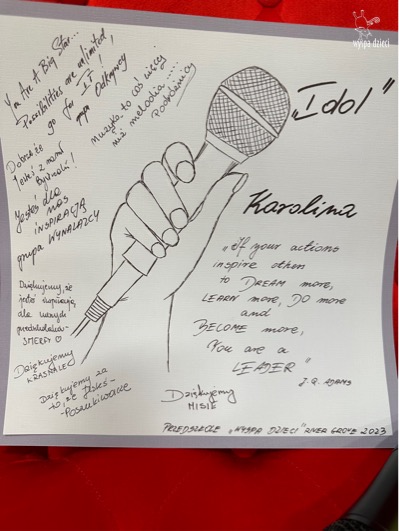 wyspa dzieci
You Are A Big Star...
Possibilities are unlimited,
go for IT!
grupa Odkrywcy
Muzyka to coś więcej
niż melodia.....
Podróżnicy
Dobrze że
Jesteś z nami
Jesteś dla
NAS
INSPIRACJĄ
grupa WYNALAZCY
Dziękujemy, że
jesteś inspiracją
dla naszych
przedszkolaków-
SMERFY
Dziękujemy
KRASNALE
Dziękujemy za
to, że jesteś -
-Poszukiwacze
„Idol"
Karolina
„If your actions
inspire others
to DREAM more,
LEARN more, DO more
and
BECOME more,
You are a
LEADER"
J. Q. ADAMS
Dziękujemy
MISIE
PRZEDSZKOLE „WYSPA DZIECI" RIVER GROVE 2023